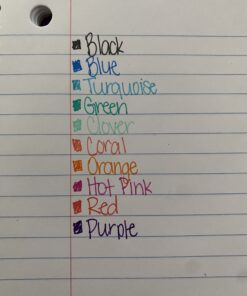 Black
Blue
Turquoise
Green
Clover
Coral
Orange
Hot Pink
Red
Purple